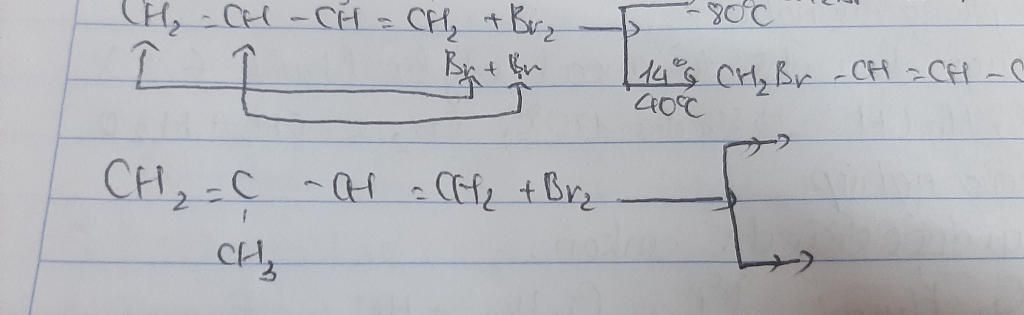 CH₂ = CH - CH = CH₂ + Br₂ -80°C
Br + Br 14°g CH₂Br - CH = CH - C
40°C
CH₂ = C - CH = CH₂ + Br₂
CH₃